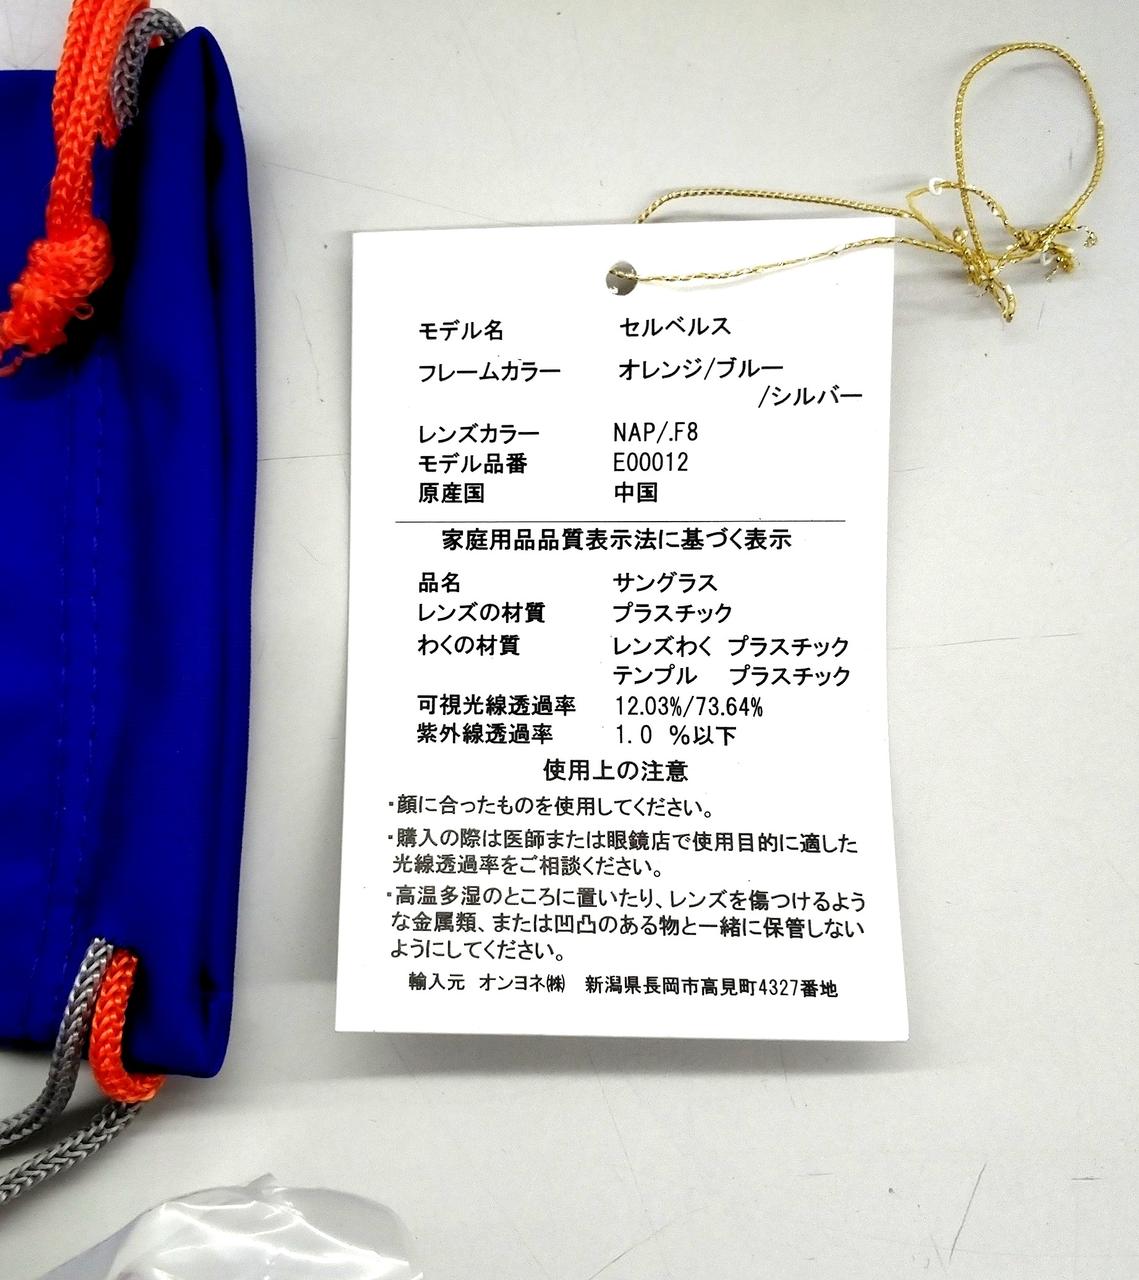 モデル名 セルベルス
フレームカラー オレンジ/ブルー
/シルバー
レンズカラー NAP/.F8
モデル品番 E00012
原産国 中国
家庭用品品質表示法に基づく表示
品名 サングラス
レンズの材質 プラスチック
わくの材質 レンズわく プラスチック
テンプル プラスチック
可視光線透過率 12.03%/73.64%
紫外線透過率 1.0 %以下
使用上の注意
・顔に合ったものを使用してください。
・購入の際は医師または眼鏡店で使用目的に適した
光線透過率をご相談ください。
・高温多湿のところに置いたり、レンズを傷つけるよう
な金属類、または凹凸のある物と一緒に保管しない
ようにしてください。
輸入元 オンヨネ㈱ 新潟県長岡市高見町4327番地